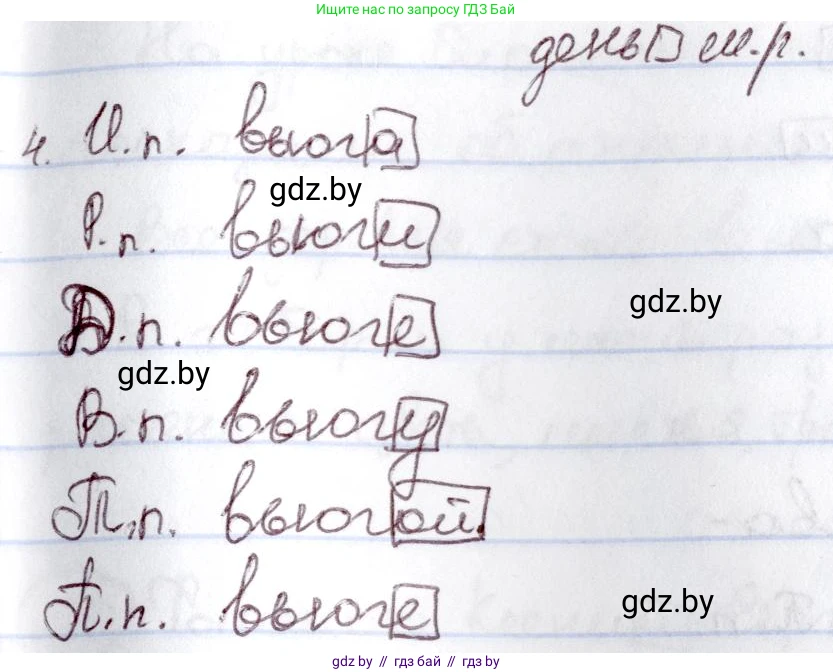 Ищите нас по запросу ГДЗ Бай
день м.р.
4. И.п. вьюга
gdz.by
Р.п. вьюги
gdz.by
Д.п. вьюге
gdz.by
В.п. вьюгу
Т.п. вьюгой.
П.п. вьюге
gdz.by
gdz.by // гдз бай // гдз by